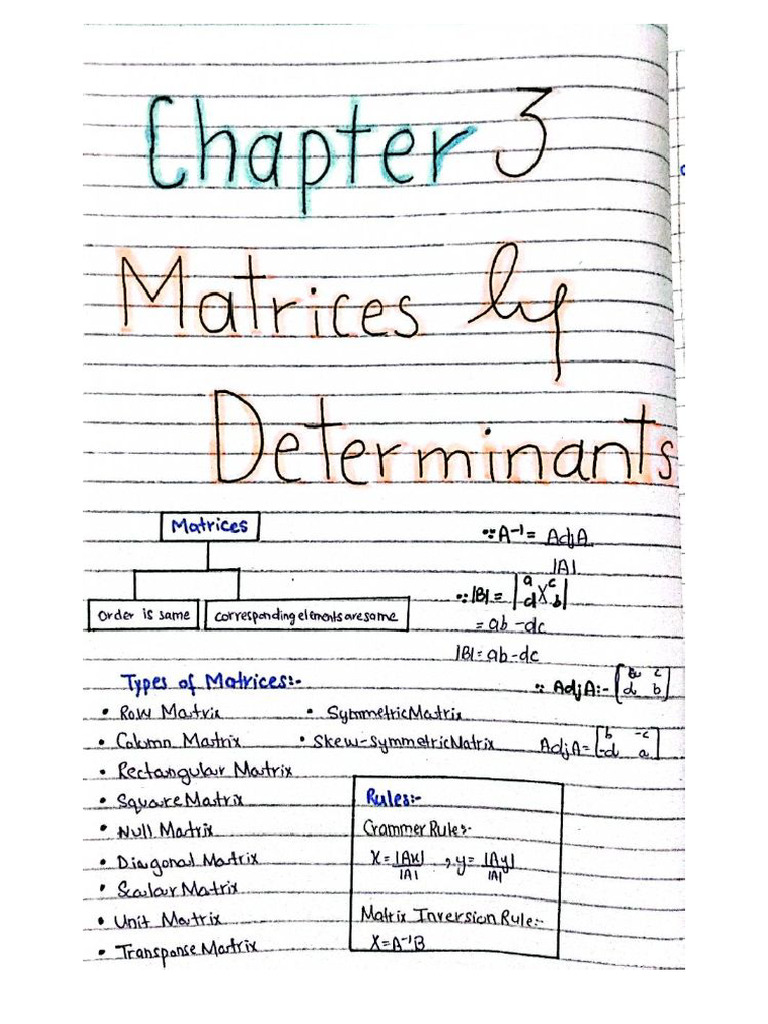 Chapter 3
Matrices by
Determinants
Matrices
Order is same
corresponding elements are same
∵ A⁻¹ = AdjA
|A|
∵ |B| = |a c
d b|
= ab - dc
|B| = ab - dc
Types of Matrices:-
• Row Matrix
• Column Matrix
• Rectangular Matrix
• Square Matrix
• Null Matrix
• Diagonal Matrix
• Scalar Matrix
• Unit Matrix
• Transponse Matrix
• Symmetric Matrix
• Skew-Symmetric Matrix
∵ AdjA:- [a c
d b]
AdjA = [b -c
-d a]
Rules:-
Crammer Rule:-
X = |Ax| , y = |Ay|
|A| |A|
Matrix Inversion Rule:-
X = A⁻¹B